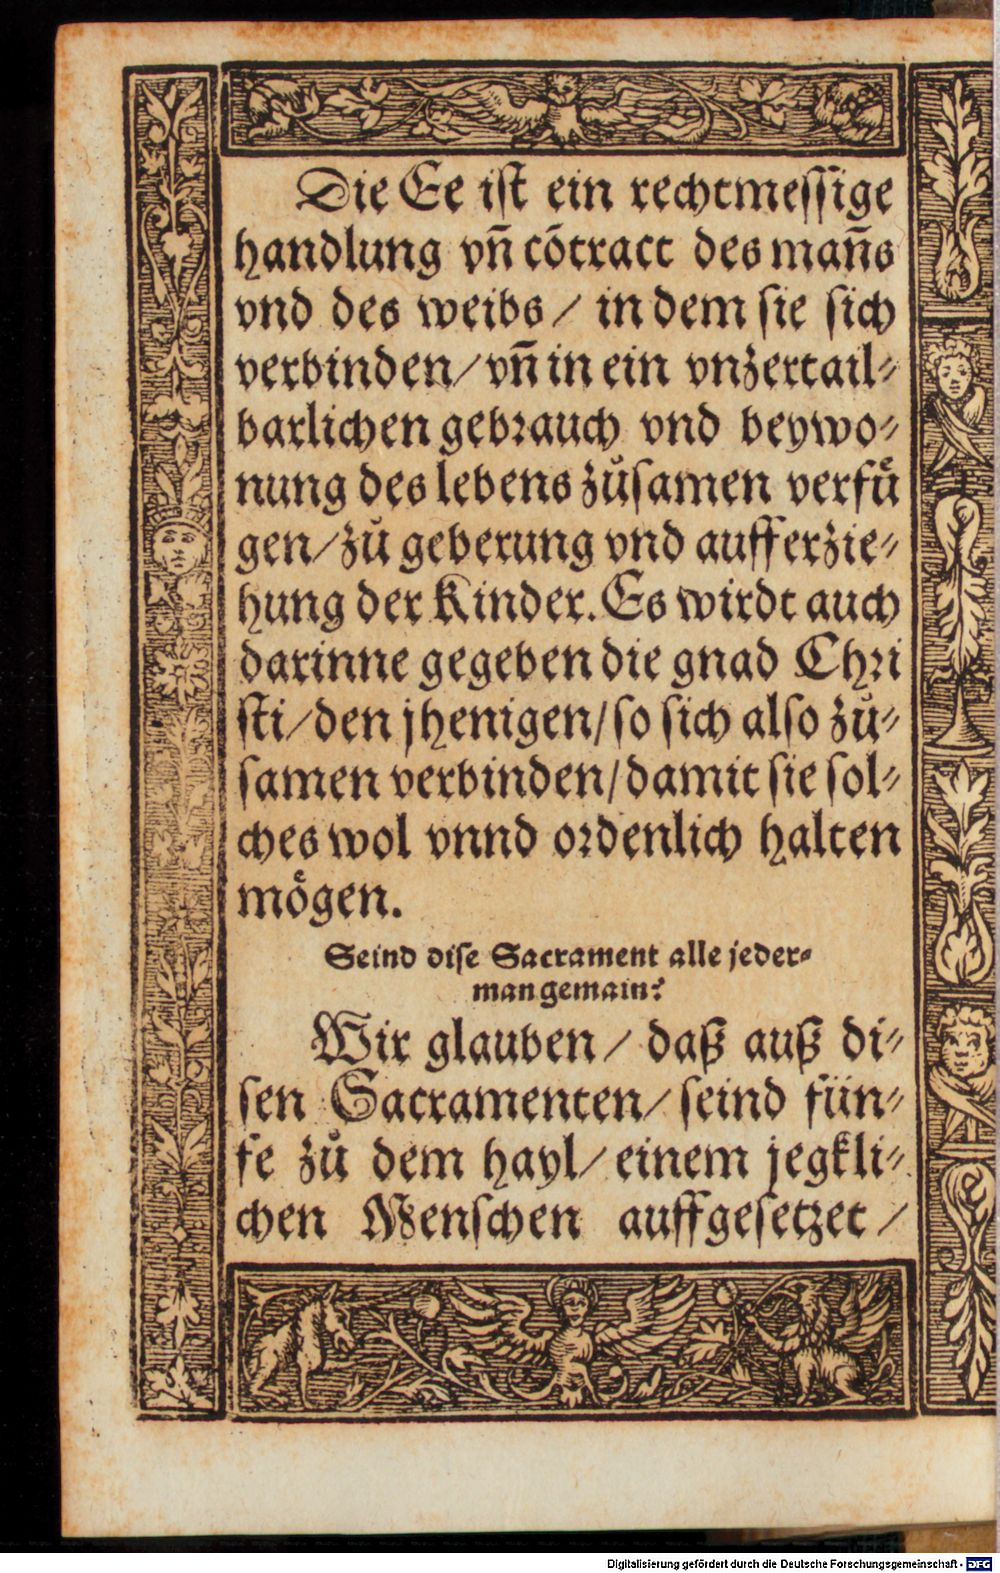 Die Ee iſt ein rechtmeſſige
handlung vñ cõtract des mañs
vnd des weibs / in dem ſie ſich
verbinden / vñ in ein vnzertail⸗
barlichen gebꝛauch vnd beywo⸗
nung des lebens zůſamen verfuͤ
gen / zů geberung vnd aufferzie⸗
hung der Kinder. Es wirdt auch
darinne gegeben die gnad Chꝛi
ſti / den jhenigen / ſo ſich alſo zů⸗
ſamen verbinden / damit ſie ſol⸗
ches wol vnnd oꝛdenlich halten
moͤgen.
Seind diſe Sacrament alle jeder⸗
man gemain?
Wir glauben / daß auß di⸗
ſen Sacramenten / ſeind fün⸗
fe zů dem hayl / einem jegkli⸗
chen Menſchen auffgeſetzet /
Digitalisierung gefördert durch die Deutsche Forschungsgemeinschaft - DFG